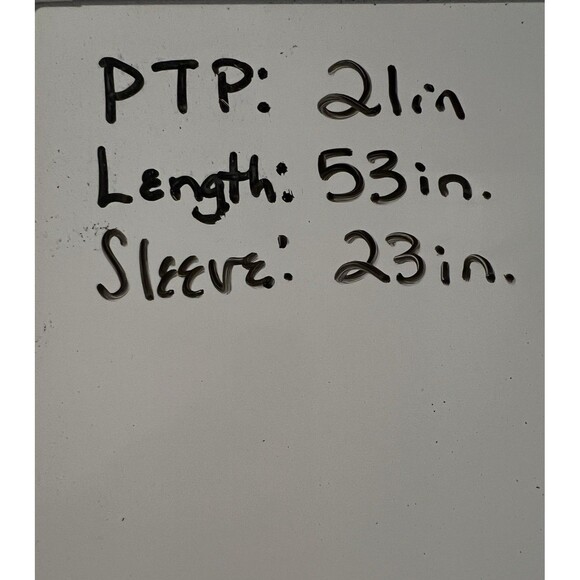 PTP: 21in
Length: 53in.
Sleeve: 23in.